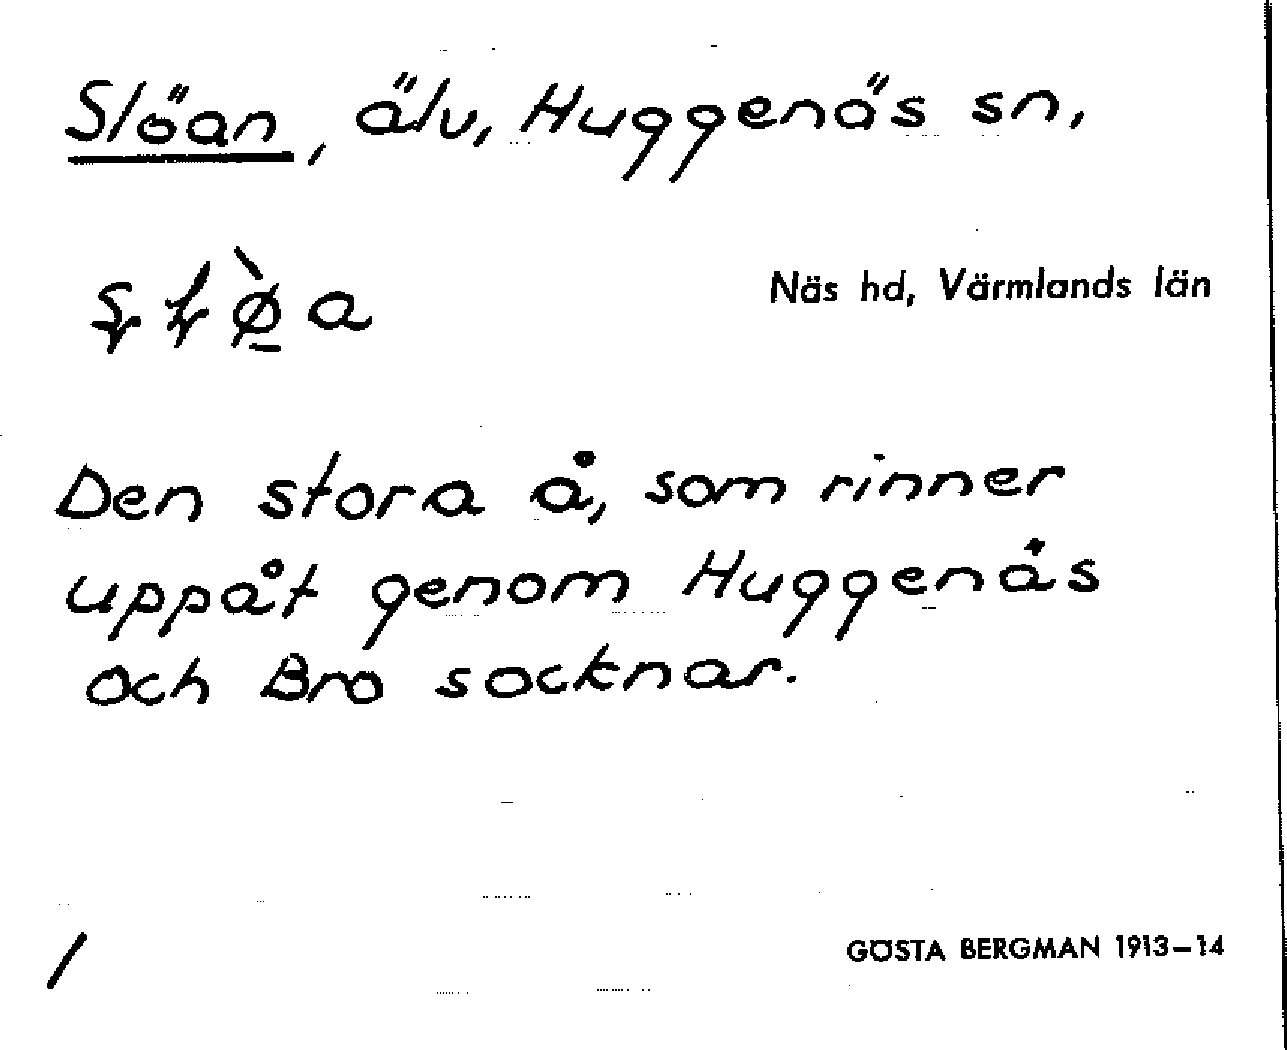 Slöan, älv, Huggenäs sn,
Näs hd, Värmlands län
Den stora å, som rinner
uppåt genom Huggenäs
och Bro socknar.
/
GÖSTA BERGMAN 1913–14